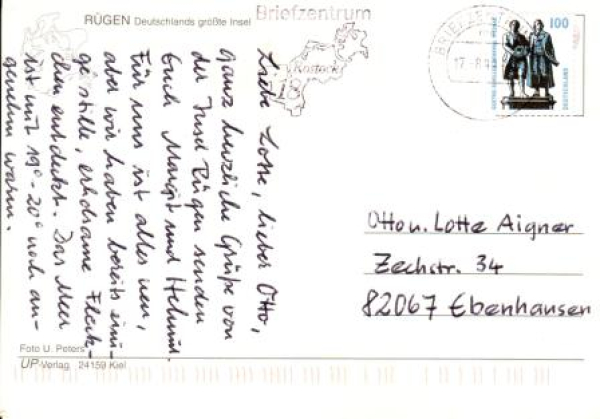 RÜGEN Deutschlands größte Insel
Briefzentrum
Rostock
18
BRIEFZENT
17.-8.9
100
DEUTSCHLAND
Liebe Lotte, lieber Otto,
ganz herzliche Grüße von
der Insel Rügen senden
Euch Margit und Helmut.
Für uns ist alles neu,
aber wir haben bereits eini-
ge stille, erholsame Fleck-
chen entdeckt. Das Meer
ist mit 19°-20° noch an-
genehm warm.
Otto u. Lotte Aigner
Zechstr. 34
82067 Ebenhausen
Foto U. Peters
UP-Verlag 24159 Kiel